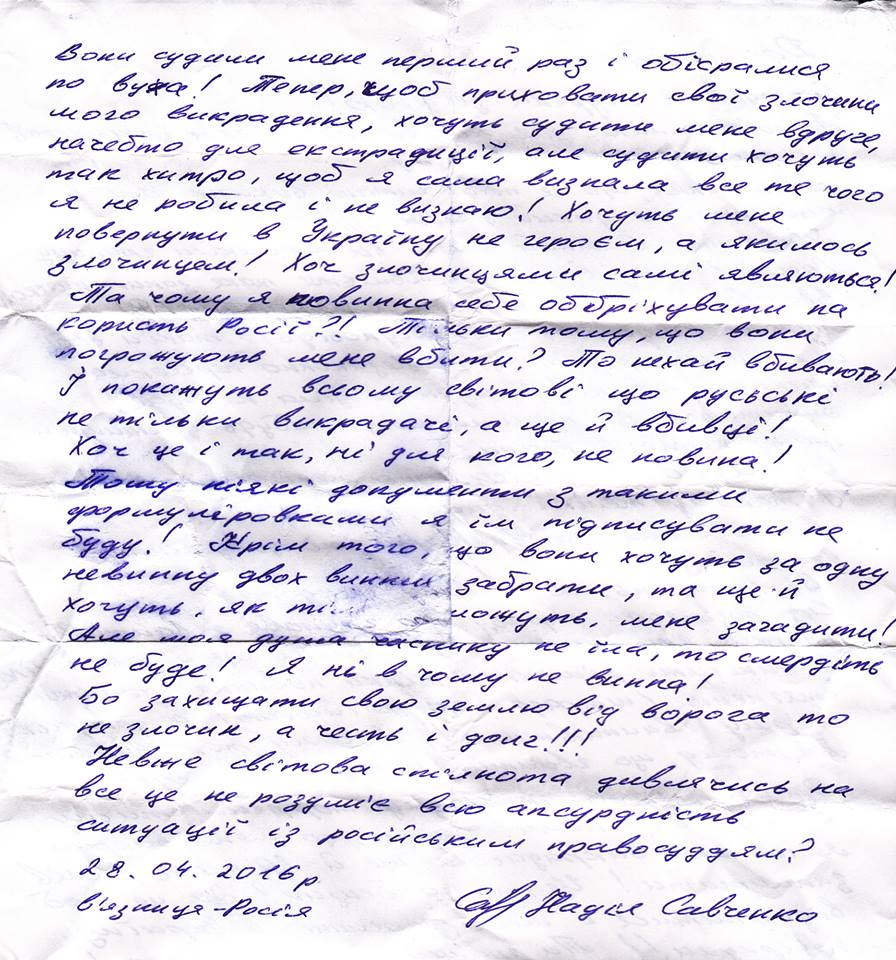 Вони судили мене перший раз і обісралися
по вуха! Тепер, щоб приховати свої злочини
мого викрадення, хочуть судити мене вдруге,
начебто для екстрадиції, але судити хочуть
так хитро, щоб я сама визнала все те чого
я не робила і не визнаю! Хочуть мене
повернути в Україну не героєм, а якимось
злочинцем! Хоч злочинцями самі являються!
Та чому я повинна себе оббріхувати на
користь Росії?! Тільки тому, що вони
погрожують мене вбити? То нехай вбивають!
І покажуть всьому світові що руські
не тільки викрадачі, а ще й вбивці!
Хоч це і так, ні для кого, не новина!
Тому ніякі документи з такими
формуліровками я їм підписувати не
буду! Крім того, що вони хочуть за одну
невинну двох винни забрати, та ще й
хочуть, як мене загадити!
Але моя душа часнику не їла, то смердіть
не буде! Я ні в чому не винна!
Бо захищати свою землю від ворога то
не злочин, а честь і долг!!!
Невже світова спілкнота дивлячись на
все це не розуміє всю апсурдність
ситуації із російським правосуддям?
28.04.2016р
в'язниця-Росія Надія Савченко